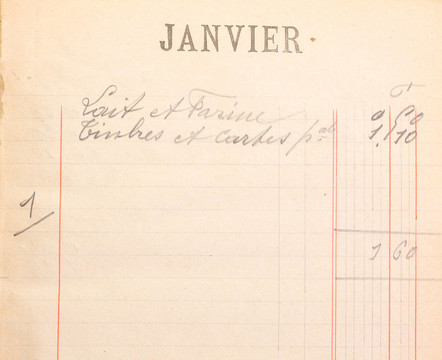 JANVIER
F
Lait et Farine 0 50
Timbres et Cartes pales 1.10
1
1 60